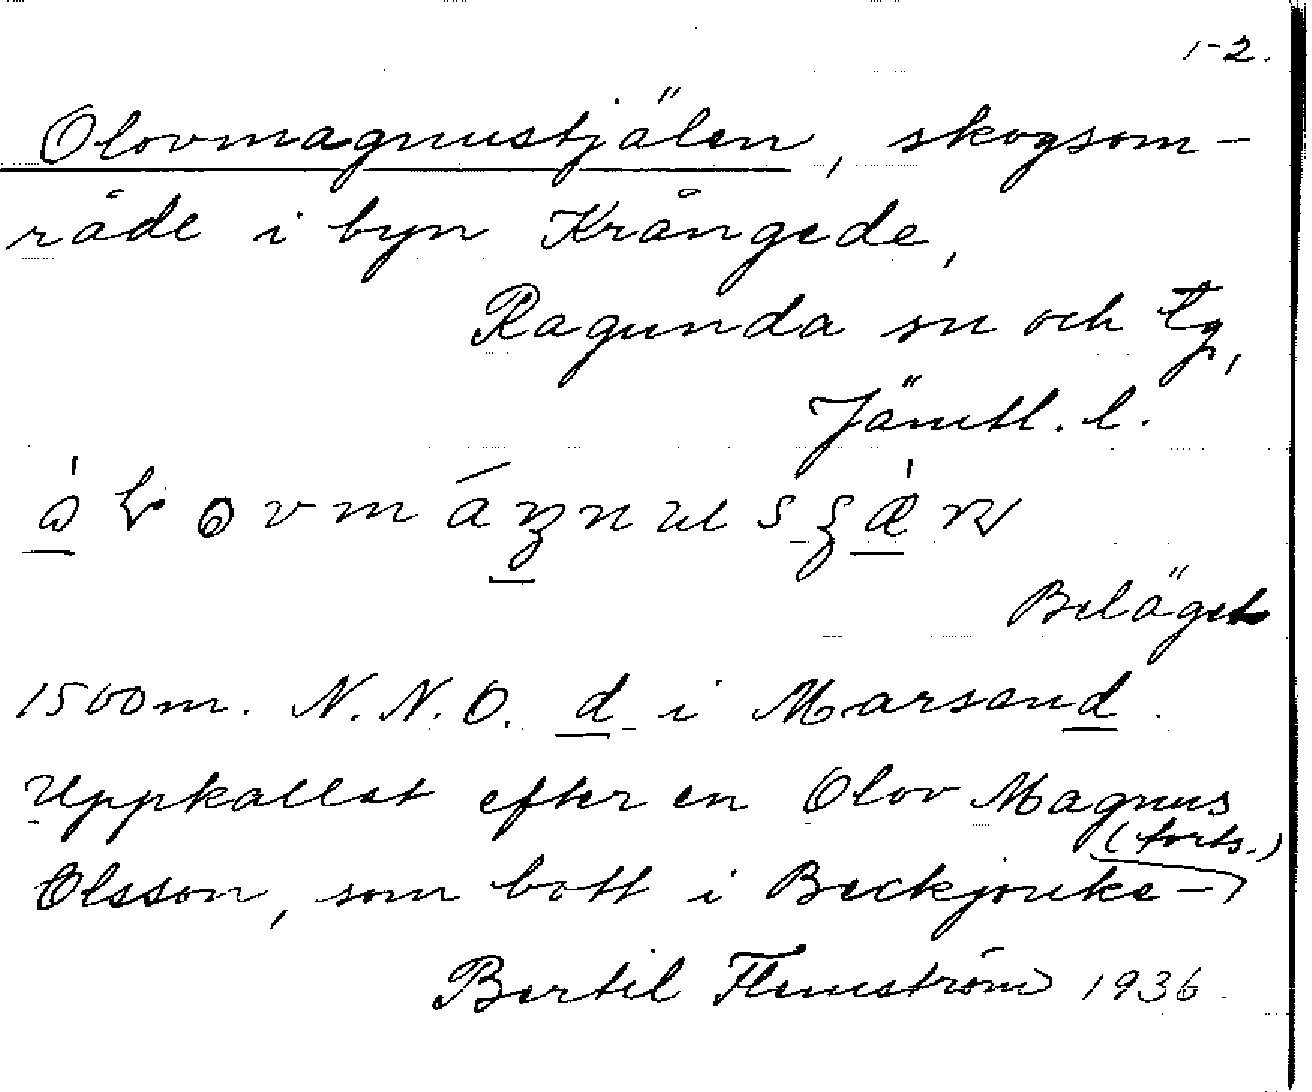 1-2.
Olovmagnustjälen, skogsom-
råde i byn Krångede,
Ragunda sn och tg,
Jämtl. l.
Beläget
1500m. N.N.O. d i Marsand.
Uppkallat efter en Olov Magnus
(forts.)
Olsson, som bott i
Bertil Flemström 1936